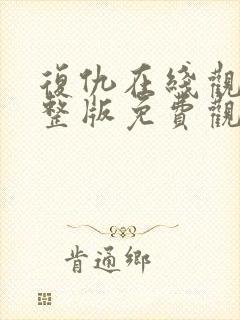 復仇在綫觀
整版免費觀
肯通鄉